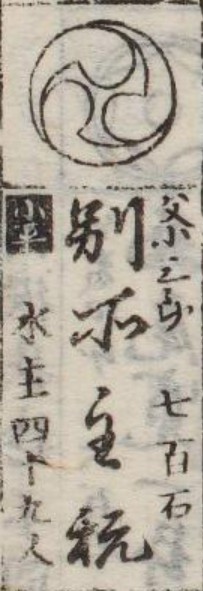 父小三郎 七百石
別所主税
水主四十九人